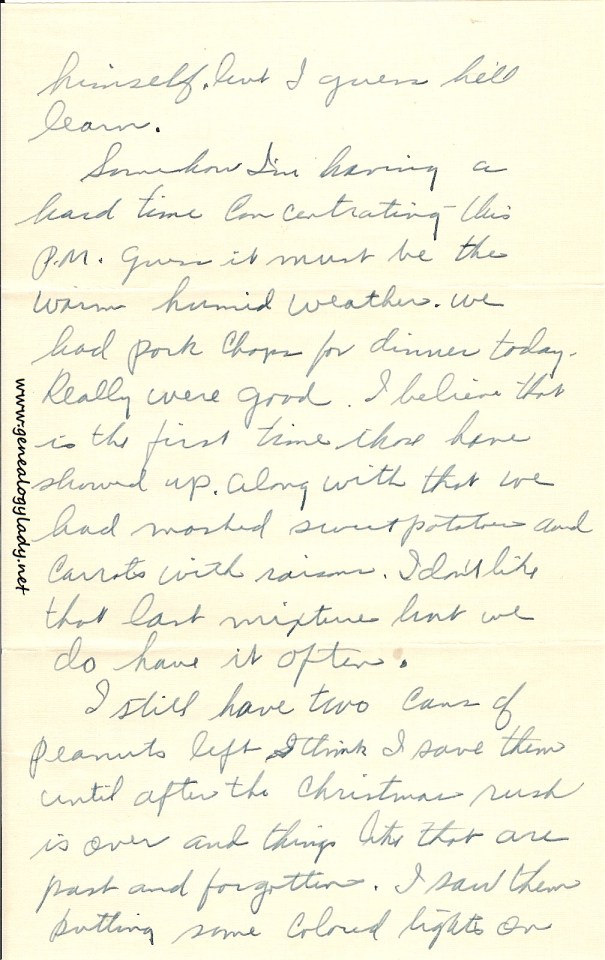 himself, but I guess he'll
learn.
Somehow I'm having a
hard time concentrating this
P.M. Guess it must be the
warm humid weather. We
had pork chops for dinner today.
Really were good. I believe that
is the first time those have
showed up. Along with that we
had mashed sweet potatoes and
carrots with raisins. I don't like
that last mixture but we
do have it often.
I still have two cans of
peanuts left. I think I save them
until after the Christmas rush
is over and things like that are
past and forgotten. I saw them
putting some colored lights on
www.genealogylady.net